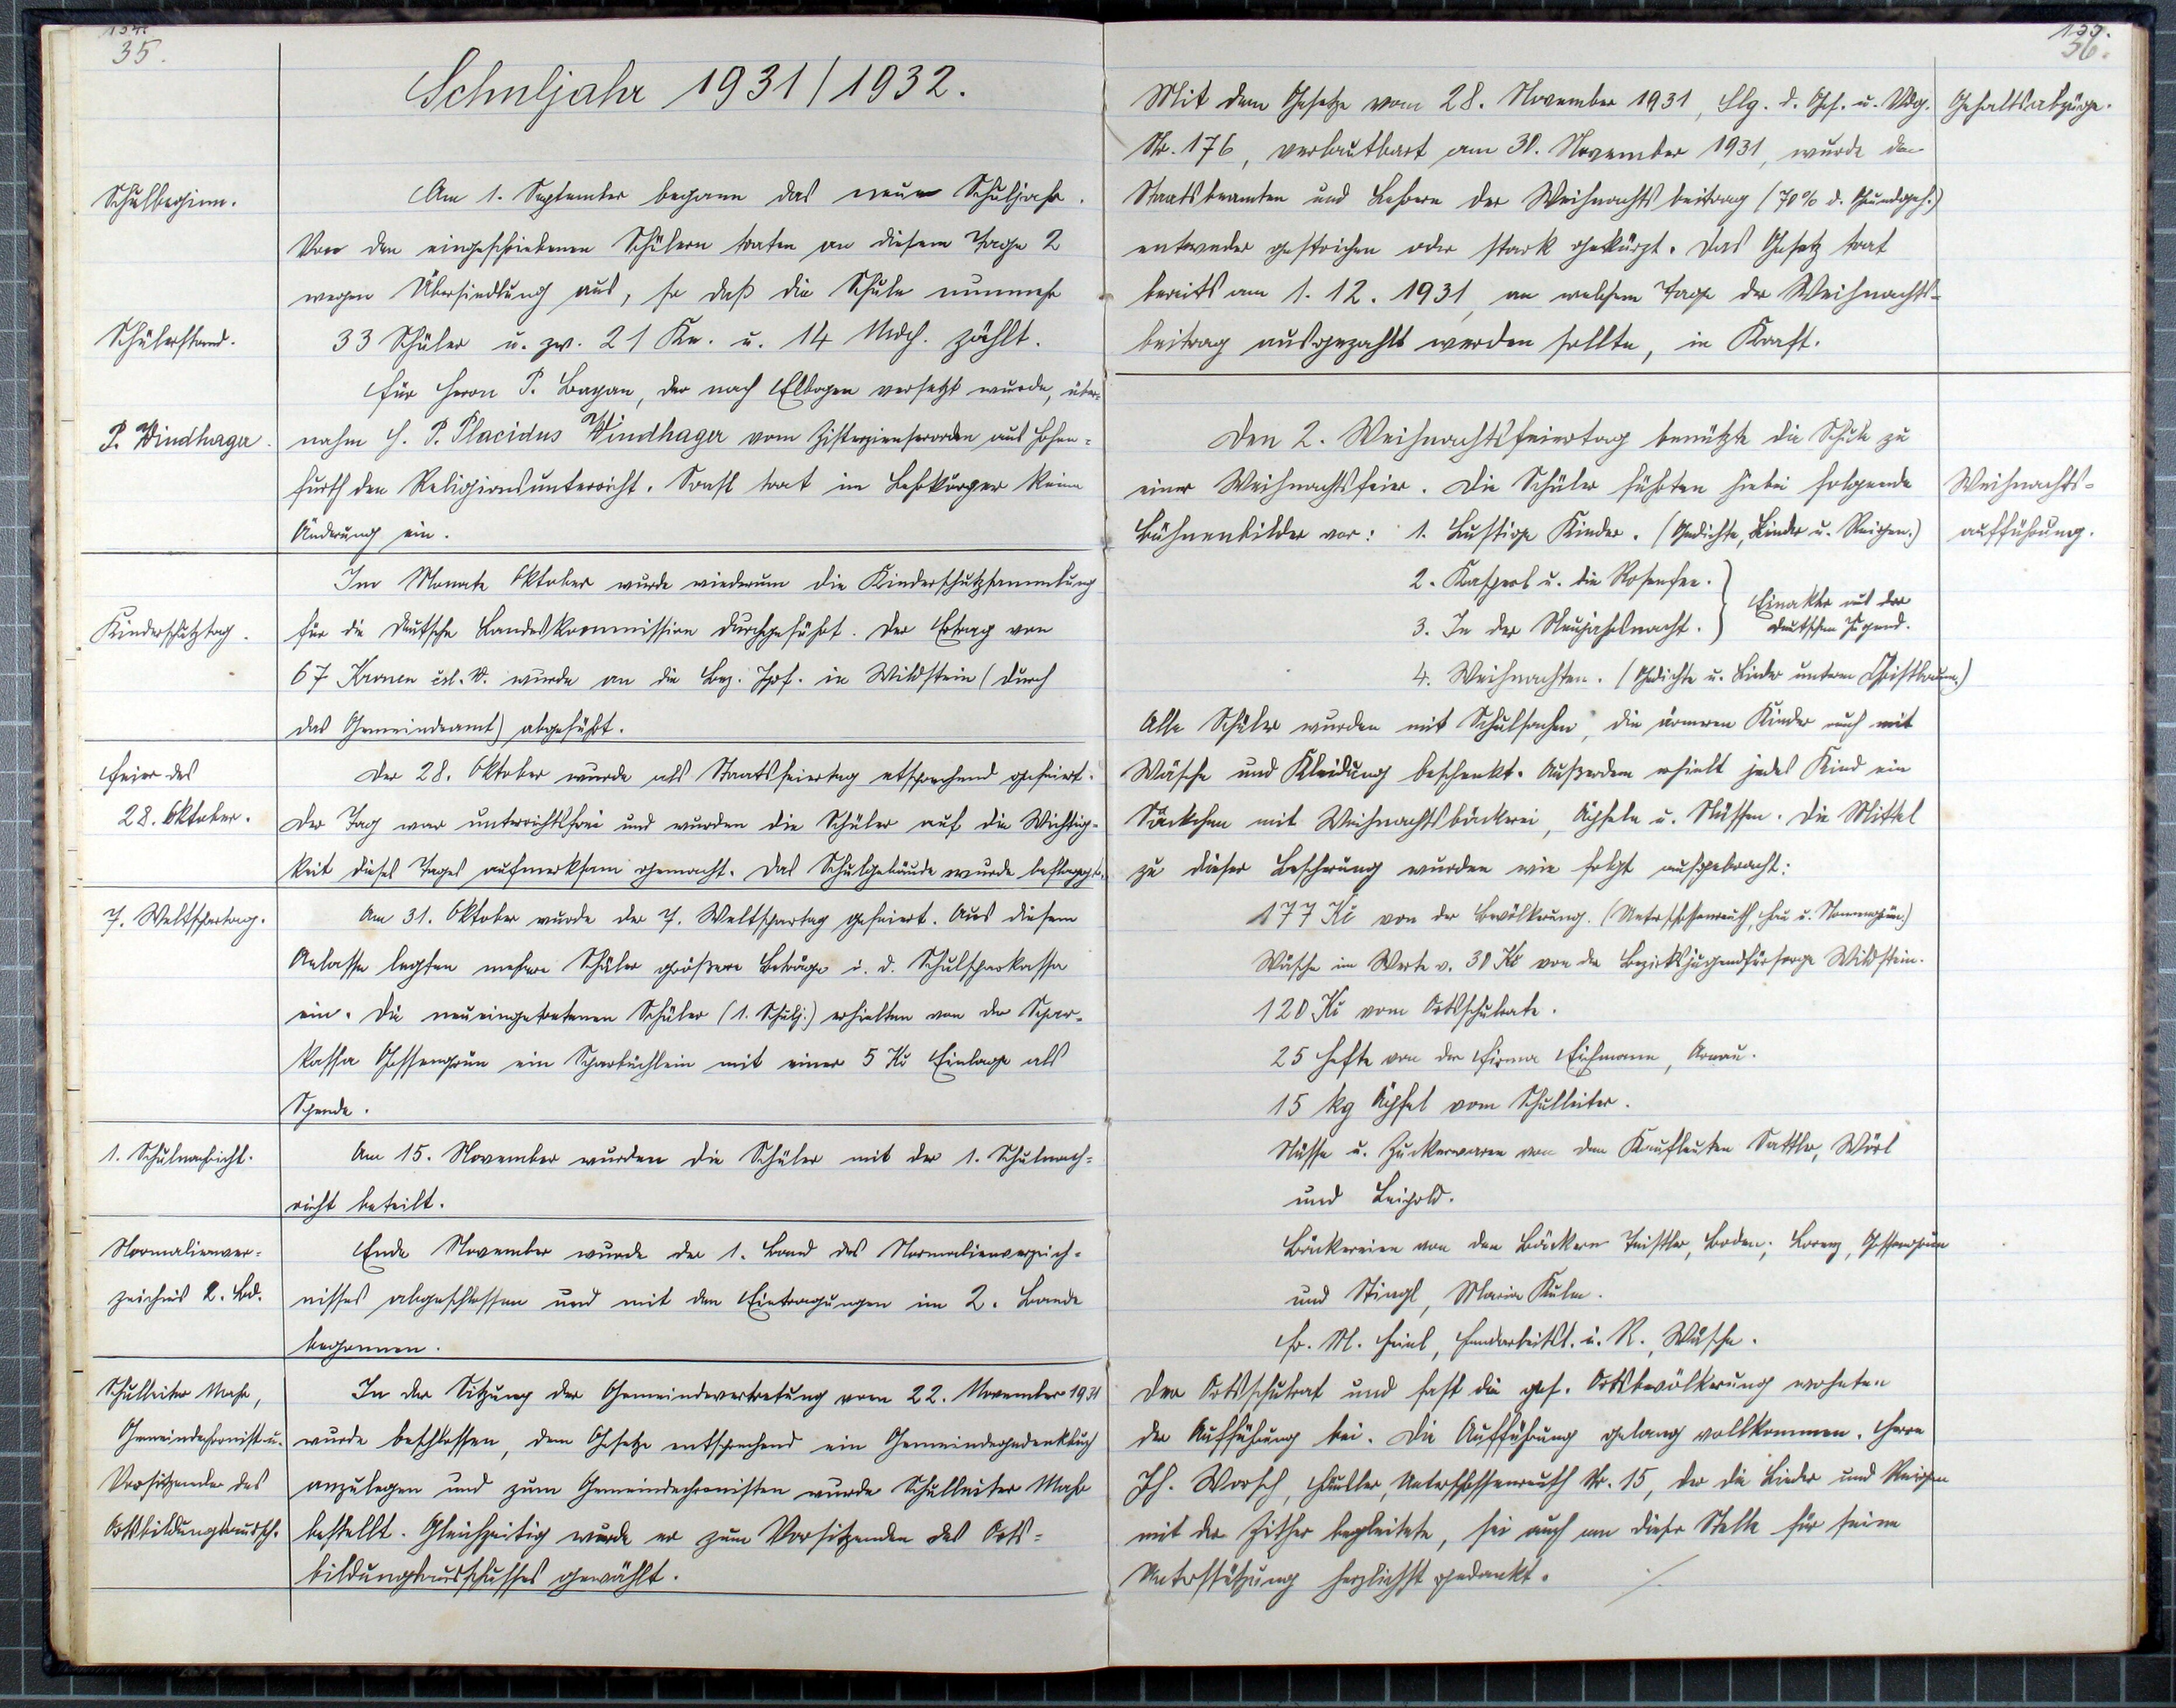 134.
35.
Schuljahr 1931/1932.
Schulbeginn.
Am 1. September begann das neue Schuljahr.
Von den eingeschriebenen Schülern traten an diesem Tage 2
wegen Übersiedlung aus, so daß die Schule nunmehr
Schülerstand.
33 Schüler u. zw. 21 Kn. u. 14 Mdch. zählt.
Für Herrn P. Bayan, der nach Elbogen versetzt wurde, über-
P. Windhager.
nahm H. P. Placidus Windhager vom Zisterzienserorden aus Hohen-
furth den Religionsunterricht. Sonst trat im Lehrkörper keine
Änderung ein.
Im Monate Oktober wurde wiederum die Kinderschutzsammlung
Kinderschutztag.
für die deutsche Landeskommission durchgeführt. Der Ertrag von
67 Kronen čsl. W. wurde an die Bez. Jgdf. in Wildstein (durch
das Gemeindeamt) abgeführt.
Feier des
28. Oktober.
Der 28. Oktober wurde als Staatsfeiertag etsprechend gefeiert.
Der Tag war unterrichtsfrei und wurden die Schüler auf die Wichtig-
keit dieses Tages aufmerksam gemacht. Das Schulgebäude wurde beflaggt.
7. Weltspartag.
Am 31. Oktober wurde der 7. Weltspartag gefeiert. Aus diesem
Anlasse legten mehrere Schüler größere Beträge i. d. Schulsparkassa
ein. Die neueingetretenen Schüler (1. Schulj.) erhielten von der Spar-
kassa Gossengrün ein Sparbüchlein mit einer 5 Kč Einlage als
Spende.
1. Schulnachricht.
Am 15. November wurden die Schüler mit der 1. Schulnach-
richt beteilt.
Normalienver-
zeichnis 2. Bd.
Ende November wurde der 1. Band des Normalienverzeich-
nisses abgeschlossen und mit den Eintragungen im 2. Bande
begonnen.
Schulleiter Mahr,
Gemeindechronist u.
Vorsitzender des
Ortsbildungsaussch.
In der Sitzung der Gemeindevertretung vom 22. November 1931
wurde beschlossen, dem Gesetze entsprechend ein Gemeindegedenkbuch
anzulegen und zum Gemeindechronisten wurde Schulleiter Mahr
bestellt. Gleichzeitig wurde er zum Vorsitzenden des Orts-
bildungsausschusses gewählt.
135.
36.
Mit dem Gesetze vom 28. November 1931, Slg. d. Ges. u. Vdg.
Gehaltsabzüge.
Nr. 176, verlautbart am 30. November 1931, wurde den
Staatsbeamten und Lehrern der Weihnachtsbeitrag (70% d. Grundgeh.)
entweder gestrichen oder stark gekürzt. Das Gesetz trat
bereits am 1. 12. 1931, an welchem Tage der Weihnachts-
beitrag ausgezahlt werden sollte, in Kraft.
Den 2. Weihnachtsfeiertag benützte die Schule zu
einer Weihnachtsfeier. Die Schüler führten hiebei folgende
Weihnachts-
aufführung.
Bühnenbilder vor: 1. Lustige Kinder. (Gedichte, Lieder u. Reigen.)
2. Kasperl u. die Rosenfee.
3. In der Neujahrsnacht.
Einakter aus der
deutschen Jugend.
4. Weihnachten. (Gedichte u. Lieder unterm Christbaum.)
Alle Schüler wurden mit Schulsachen, die ärmeren Kinder auch mit
Wäsche und Kleidung beschenkt. Außerdem erhielt jedes Kind ein
Säckchen mit Weihnachtsbäckerei, Äpfeln u. Nüssen. Die Mittel
zu dieser Bescherung wurden wie folgt aufgebracht:
177 Kč von der Bevölkerung. (Unterschossenreuth, Hau u. Nonnengrün.)
Wäsche im Werte v. 30 Kč von der Bezirksjugendfürsorge Wildstein.
120 Kč vom Ortsschulrate.
25 Hefte von der Firma Eichmann, Arnau.
15 kg Äpfel vom Schulleiter.
Nüsse u. Zuckerwaren von den Kaufleuten Sattler, Wörl
und Leipold.
Bäckereien von den Bäckern Boden; Lorenz, Gossengrün
und Stingl, Maria Kulm.
Fr. M. Heinl, Handarbeitsl. i. R., Wäsche.
Der Ortsschulrat und fast die ges. Ortsbevölkerung wohnten
der Aufführung bei. Die Aufführung gelang vollkommen. Herrn
Jh. Worsch, Häusler, Unterschossenreuth Nr. 15, der die Lieder und Reigen
mit der Zither begleitete, sei auch an dieser Stelle für seine
Unterstützung herzlichst gedankt. ./.